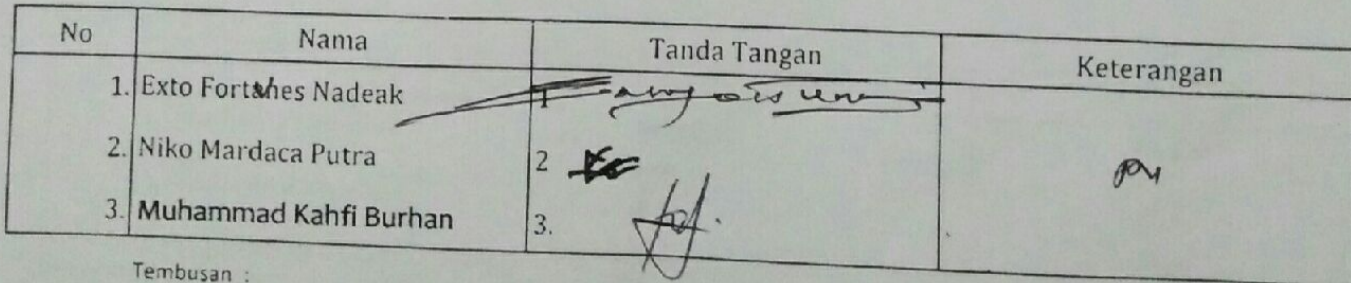 No Nama Tanda Tangan Keterangan
1. Exto Fortanes Nadeak 1
2. Niko Mardaca Putra 2
3. Muhammad Kahfi Burhan 3.
Tembusan :